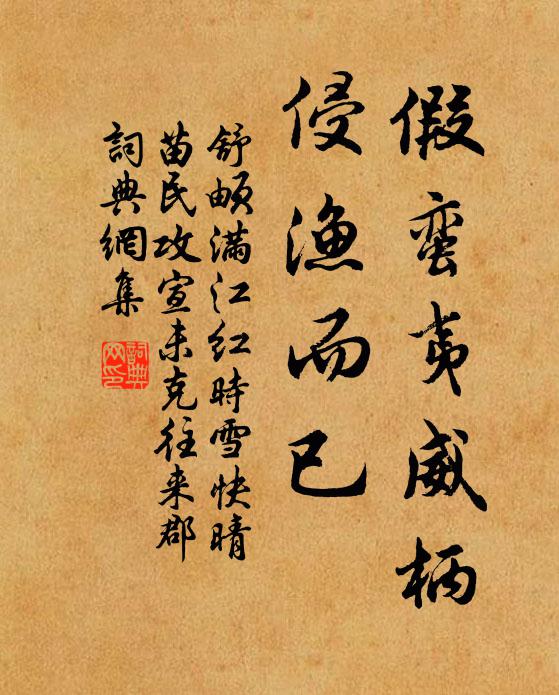 假蛮夷威柄
侵渔而已
舒頔满江红時雪快晴
苗民攻宣未克往来郡
詞典網集
詞典
网印